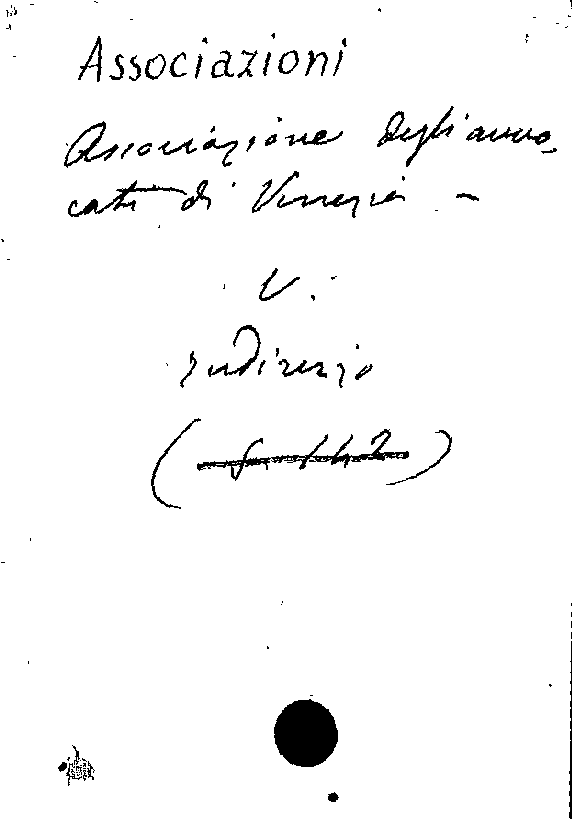 Associazioni
Associazione degli avvo-
cati di Venezia -
V.
Indirizzo
( f. 142 )